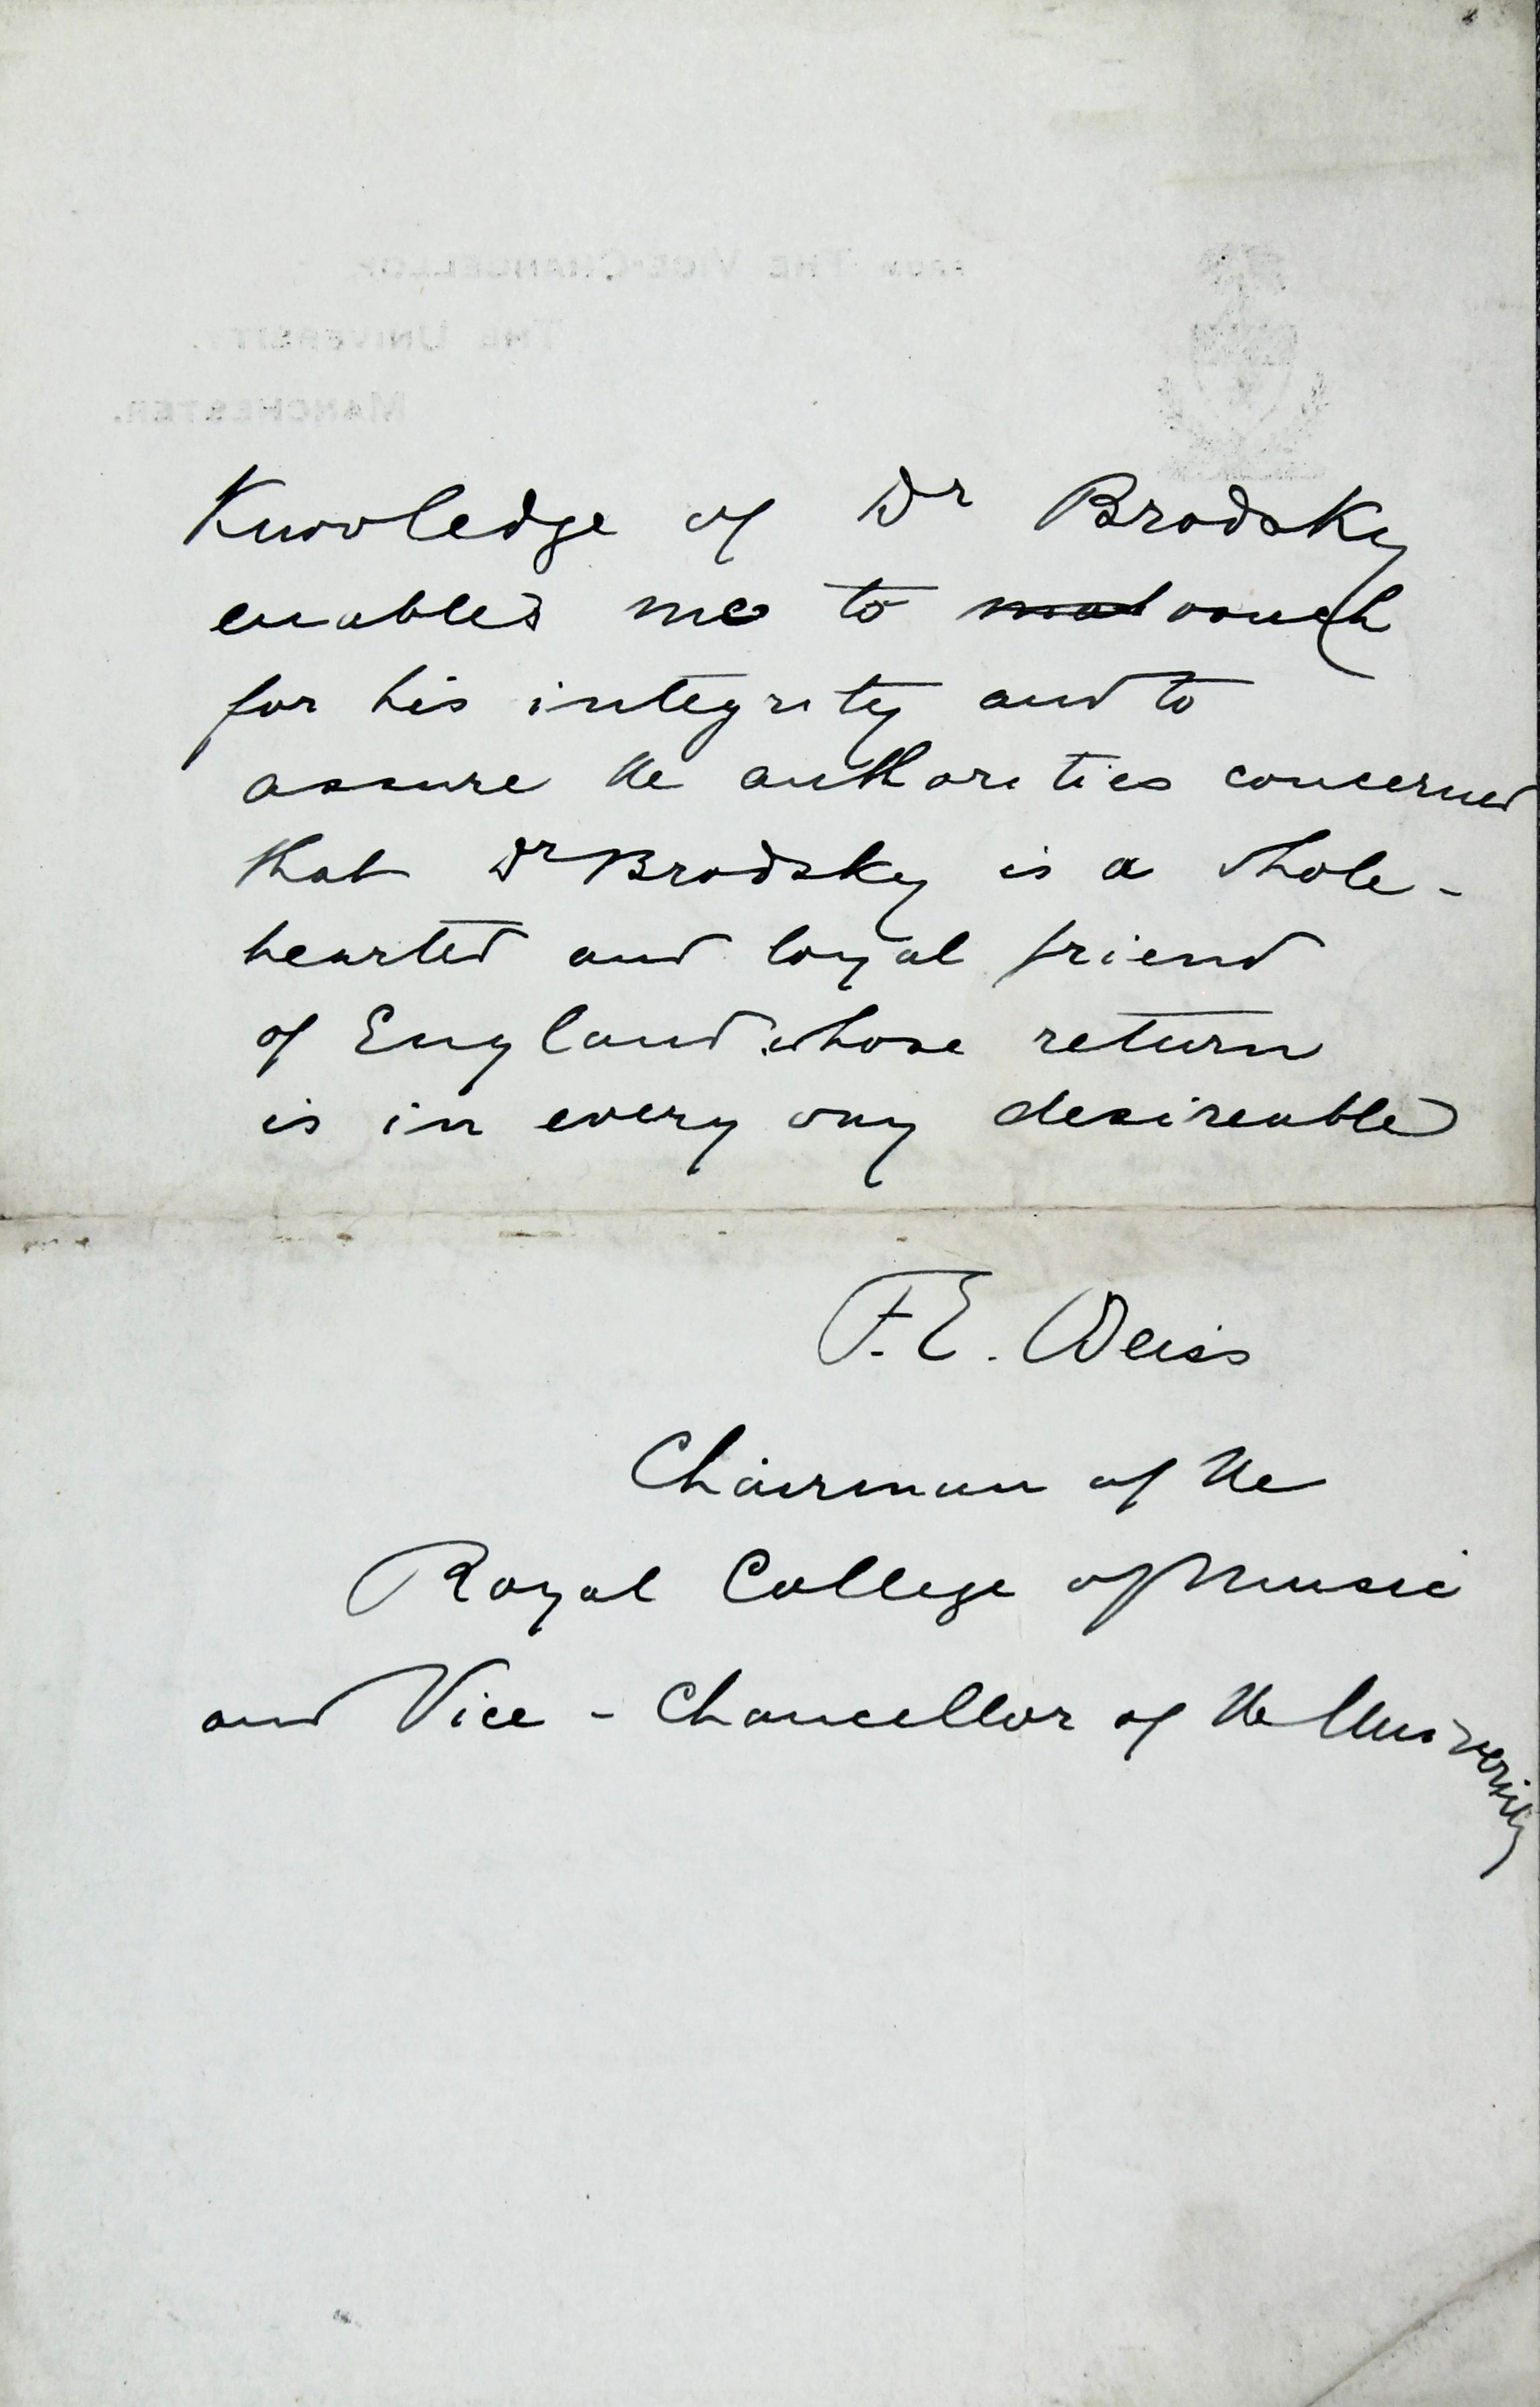 FROM THE VICE-CHANCELLOR,
THE UNIVERSITY,
MANCHESTER.
Knowledge of Dr Brodsky
enables me to vouch
for his integrity and to
assure the authorities concerned
that Dr Brodsky is a whole-
hearted and loyal friend
of England whose return
is in every way desireable
F. E. Weiss
Chairman of the
Royal College of Music
and Vice-Chancellor of the University